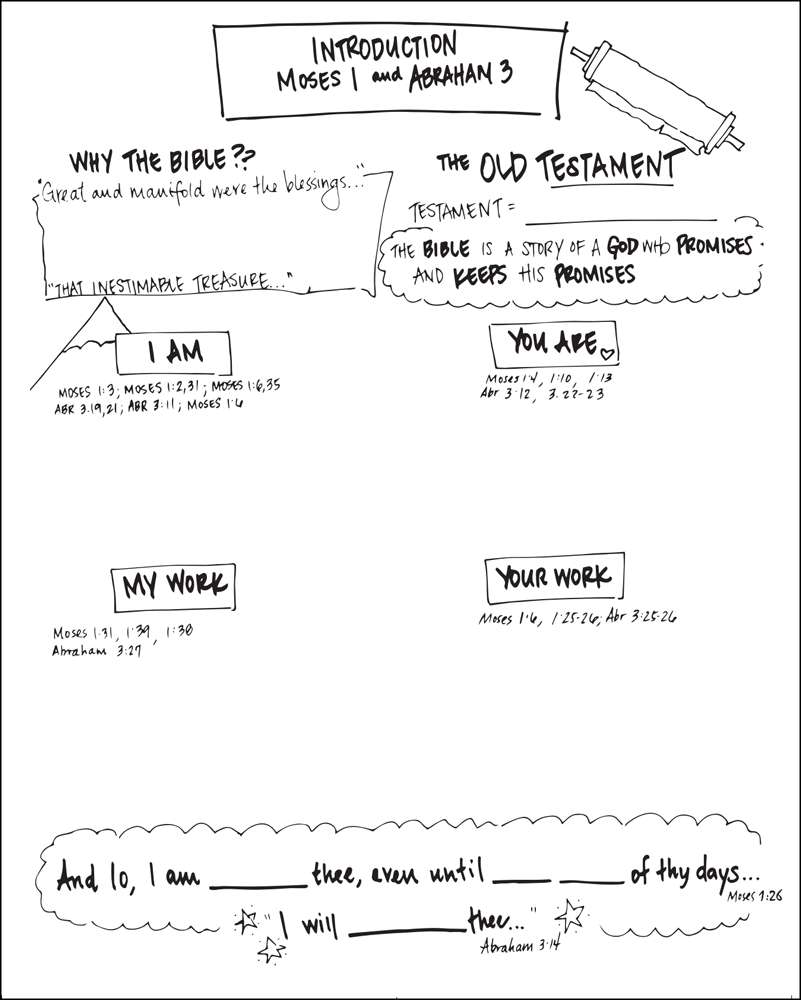 INTRODUCTION
MOSES 1 and ABRAHAM 3
WHY THE BIBLE??
"Great and manifold were the blessings..."
"THAT INESTIMABLE TREASURE..."
THE OLD TESTAMENT
TESTAMENT = ____________
THE BIBLE IS A STORY OF A GOD WHO PROMISES
AND KEEPS HIS PROMISES
I AM
MOSES 1:3; MOSES 1:2,31; MOSES 1:6,35
ABR 3:19,21; ABR 3:11; MOSES 1:6
YOU ARE
Moses 1:4, 1:10, 1:13
Abr 3:12, 3:22-23
MY WORK
Moses 1:31, 1:39, 1:38
Abraham 3:27
YOUR WORK
Moses 1:6, 1:25-26; Abr 3:25-26
And lo, I am ______ thee, even until ____ ____ of thy days...
Moses 1:26
"I will ________ thee..."
Abraham 3:14